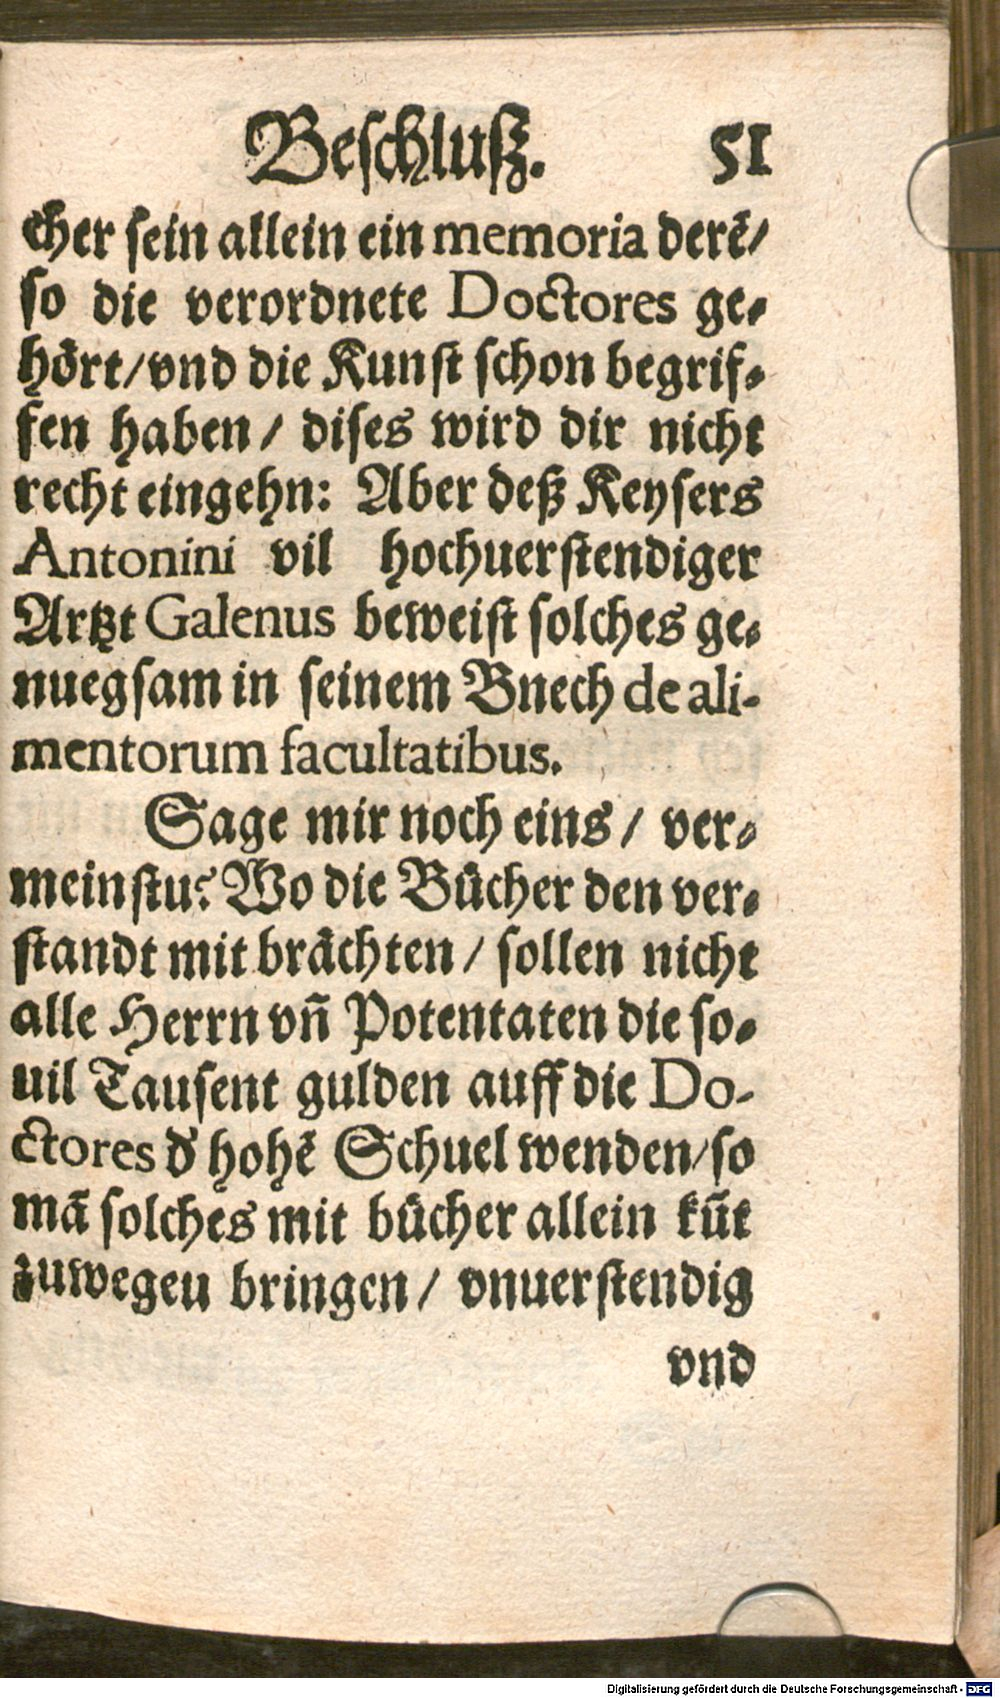 Beschluß. 51
cher sein allein ein memoria derẽ/
so die verordnete Doctores ge⸗
hört/vnd die Kunst schon begrif⸗
fen haben / dises wird dir nicht
recht eingehn: Aber deß Keysers
Antonini vil hochuerstendiger
Artzt Galenus beweist solches ge⸗
nuegsam in seinem Bnech de ali-
mentorum facultatibus.
Sage mir noch eins / ver⸗
meinstu? Wo die Bücher den ver⸗
standt mit brächten / sollen nicht
alle Herrn vñ Potentaten die so⸗
uil Tausent gulden auff die Do-
ctores d' hohẽ Schuel wenden/so
mã solches mit bücher allein kũt
zuwegeu bringen / vnuerstendig
vnd
Digitalisierung gefördert durch die Deutsche Forschungsgemeinschaft - DFG